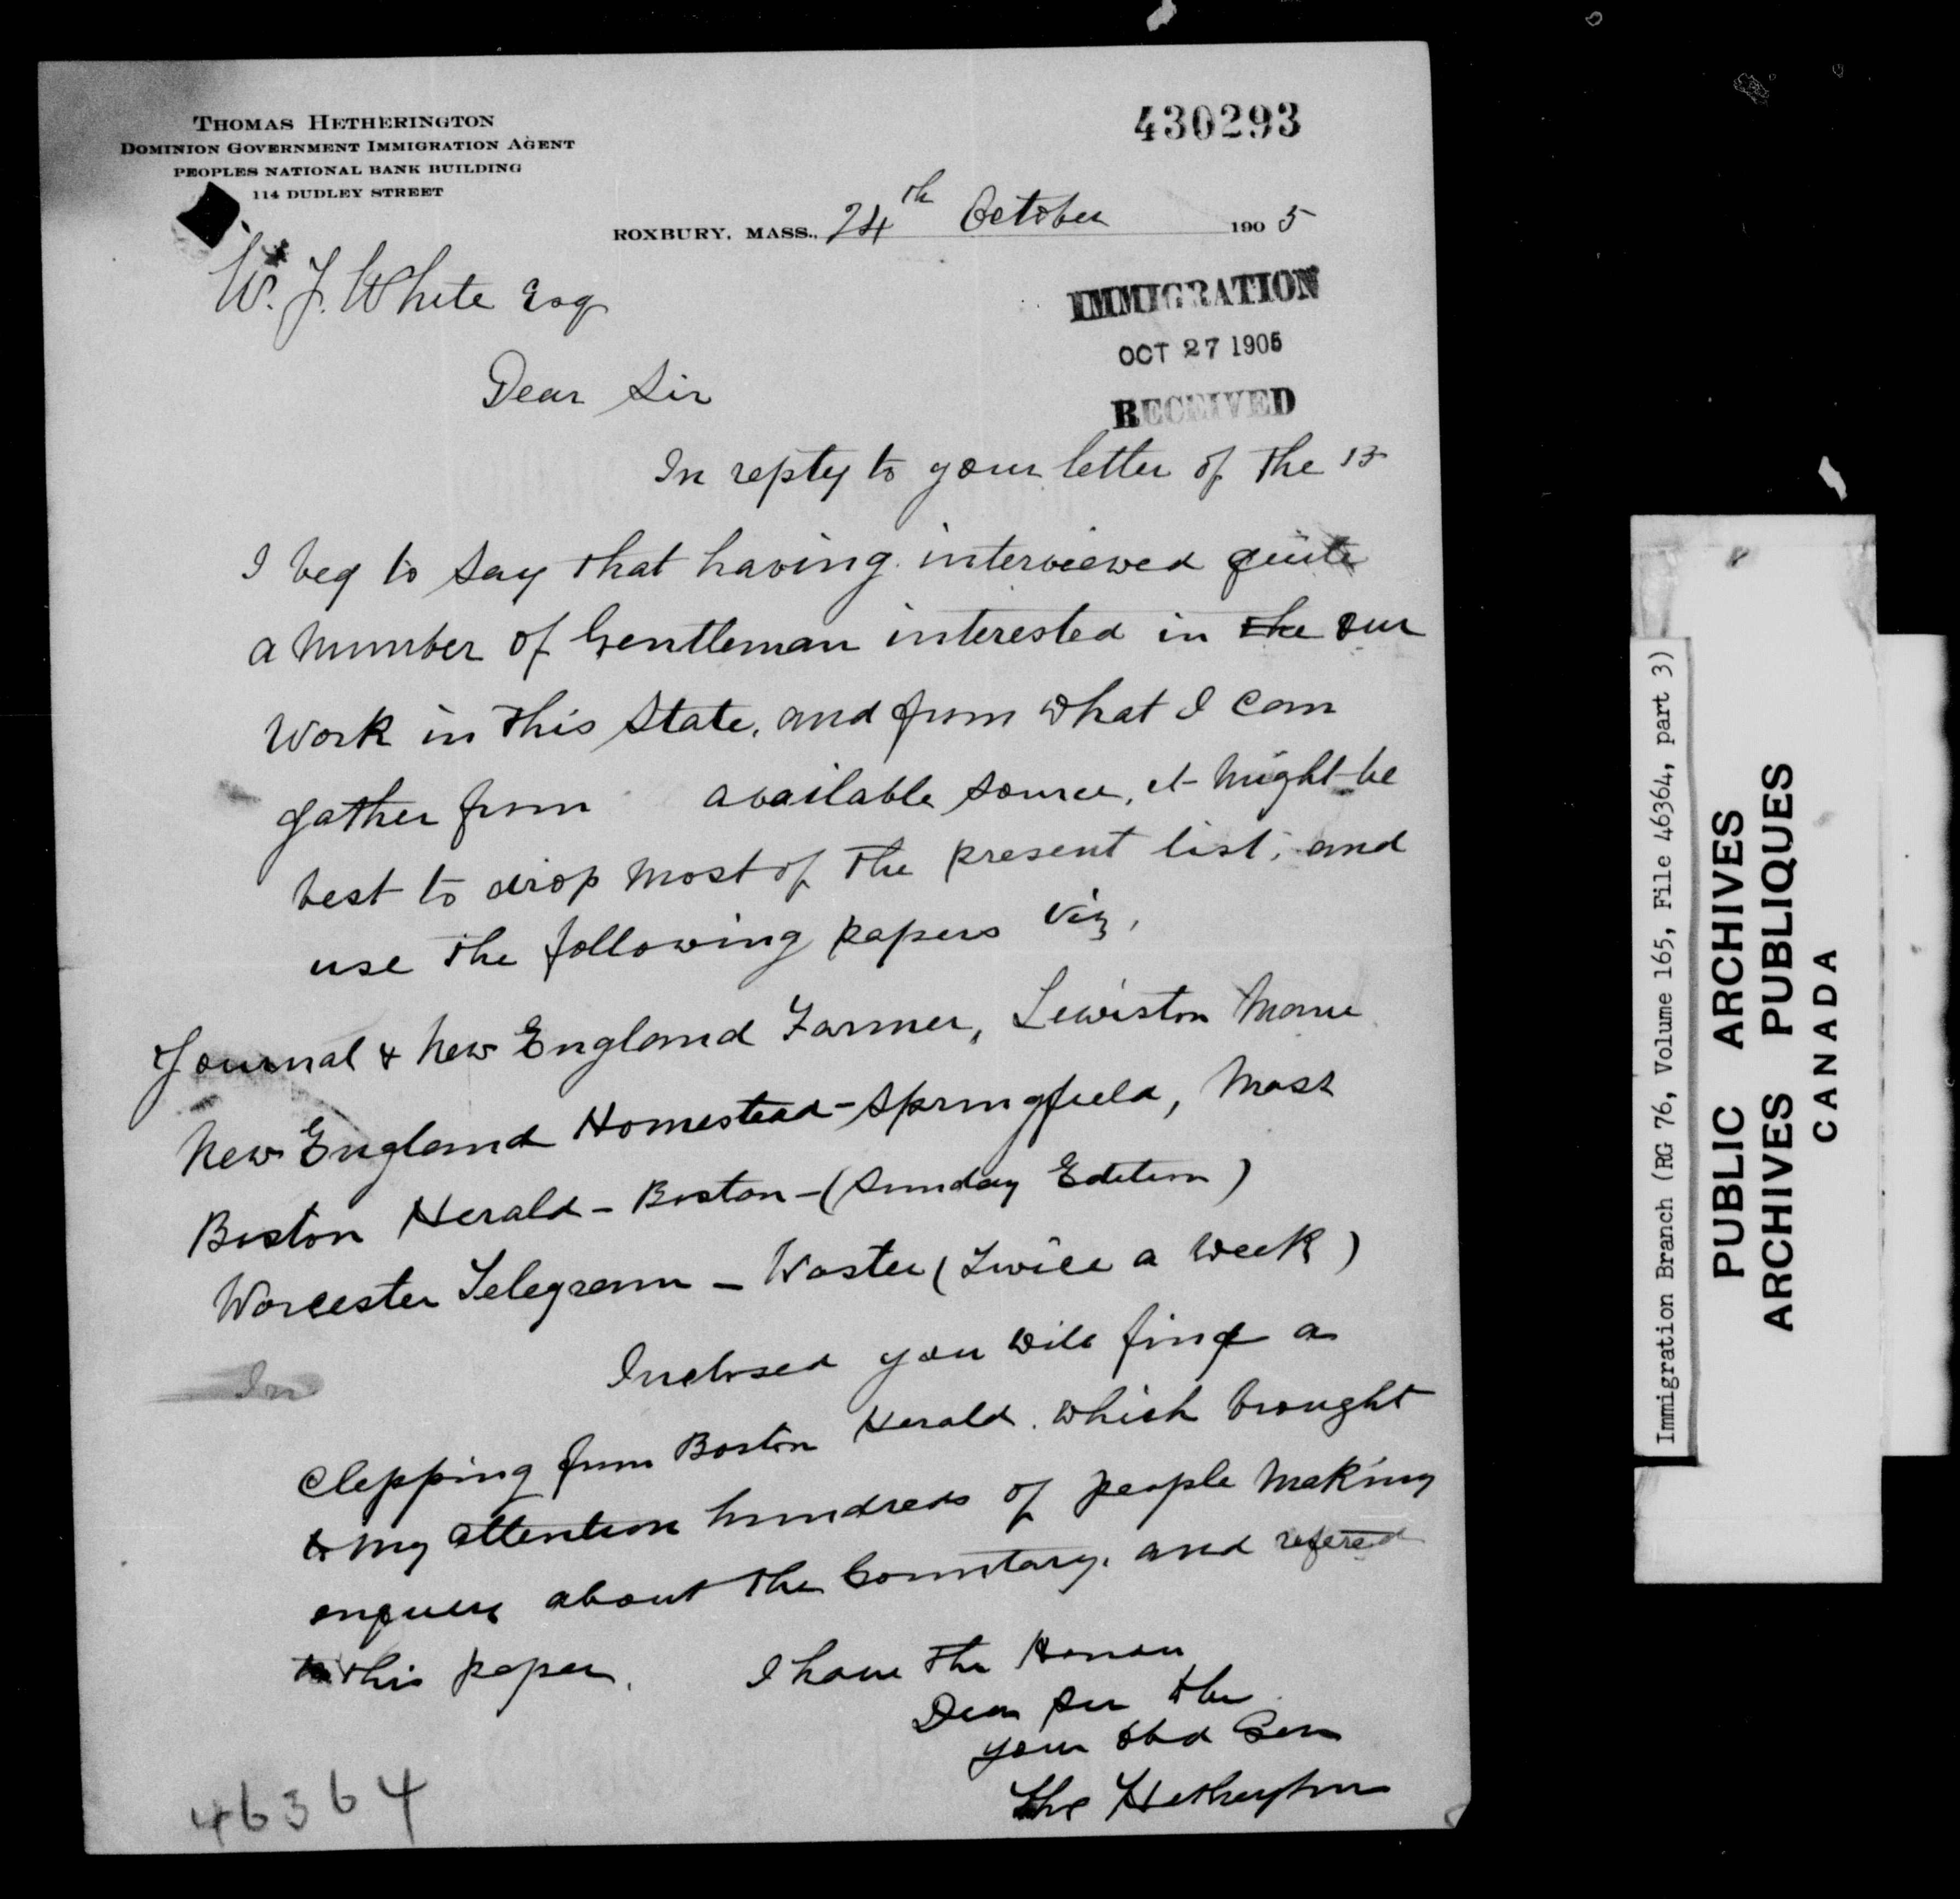 THOMAS HETHERINGTON
DOMINION GOVERNMENT IMMIGRATION AGENT
PEOPLES NATIONAL BANK BUILDING
114 DUDLEY STREET
430293
ROXBURY, MASS., 24th October 1905
W. J. White Esq
IMMIGRATION
OCT 27 1905
RECEIVED
Dear Sir
In reply to your letter of the 13
I beg to say that having interviewed quite
a number of Gentleman interested in the our
work in this State, and from what I can
gather from available source, it might be
best to drop most of the present list, and
use the following papers viz,
Journal & New England Farmer, Lewiston Maine
New England Homestead - Springfield, Mass
Boston Herald - Boston - (Sunday Edition)
Worcester Telegram - Woster (Twice a week)
In
Inclosed you will find a
Clipping from Boston Herald which brought
to my attention hundreds of people making
enquire about the Country, and refered
to this paper. I have the Honour
Dear Sir
your obd Ser
Hetherington
46364
Immigration Branch (RG 76, Volume 165, File 46364, part 3)
PUBLIC ARCHIVES
ARCHIVES PUBLIQUES
CANADA